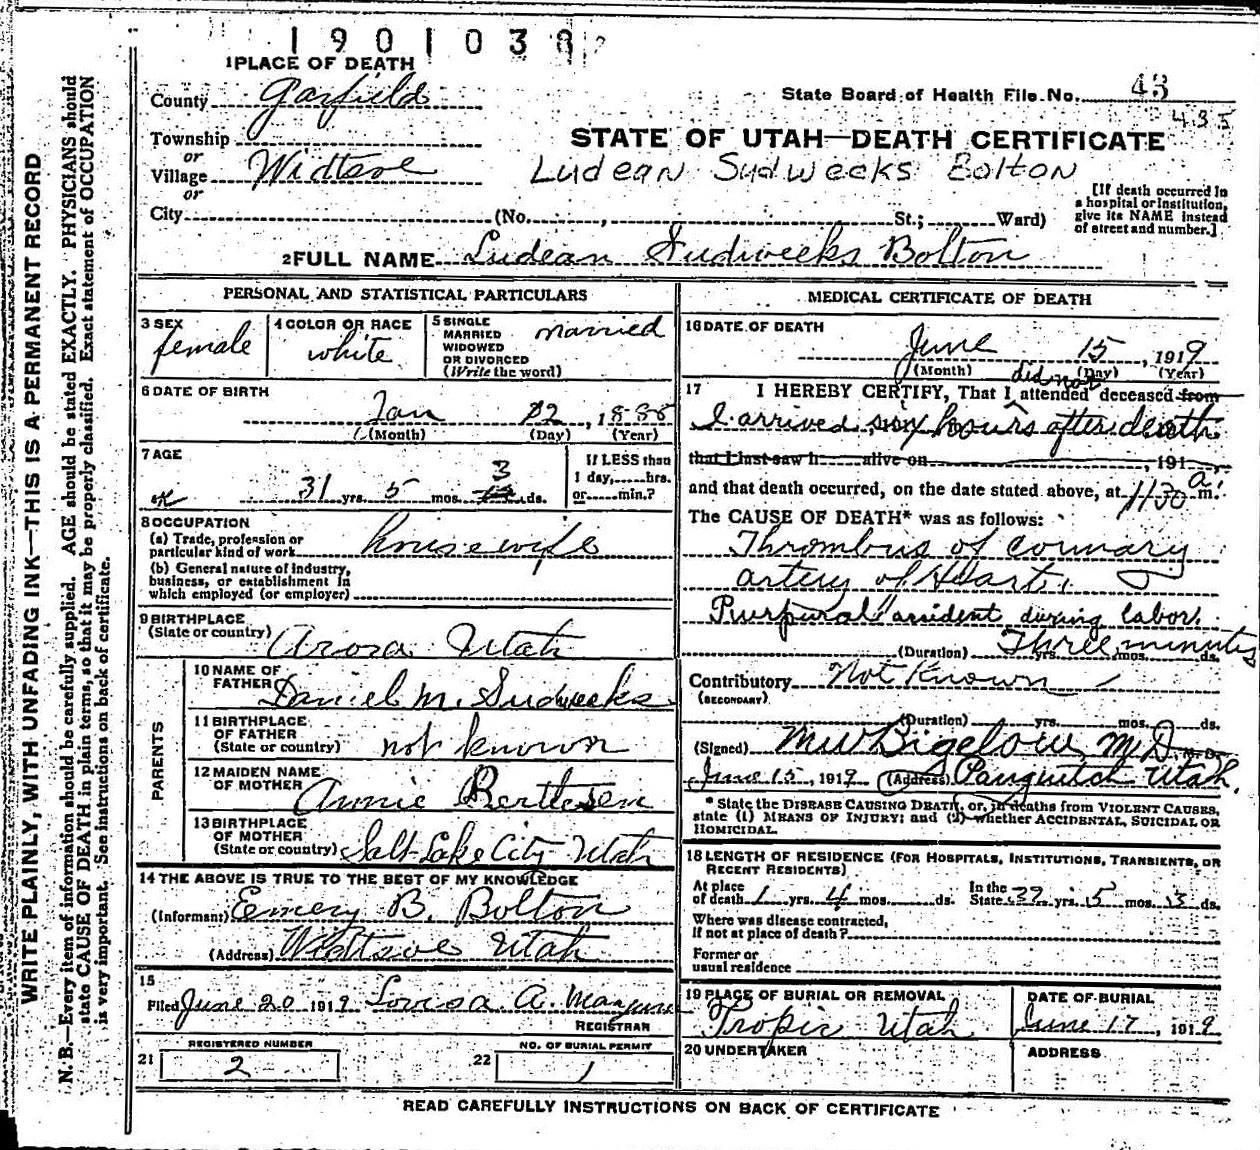 1901038
1 PLACE OF DEATH
County Garfield
State Board of Health File No. 43
435
Township
or
Village Widtsoe
or
STATE OF UTAH—DEATH CERTIFICATE
Ludean Sudweeks Bolton
City (No. , St.; Ward)
[If death occurred in
a hospital or institution,
give its NAME instead
of street and number.]
2 FULL NAME Ludean Sudweeks Bolton
PERSONAL AND STATISTICAL PARTICULARS
3 SEX
female
4 COLOR OR RACE
white
5 SINGLE
MARRIED
WIDOWED
OR DIVORCED
(Write the word)
married
6 DATE OF BIRTH
Jan 12, 1888
(Month) (Day) (Year)
7 AGE
31 yrs. 5 mos. 3 ds.
If LESS than
1 day, hrs.
or min.?
8 OCCUPATION
(a) Trade, profession or
particular kind of work housewife
(b) General nature of industry,
business, or establishment in
which employed (or employer)
9 BIRTHPLACE
(State or country) Arora Utah
PARENTS
10 NAME OF
FATHER Daniel M. Sudweeks
11 BIRTHPLACE
OF FATHER
(State or country) not known
12 MAIDEN NAME
OF MOTHER Annie Bertlesen
13 BIRTHPLACE
OF MOTHER
(State or country) Salt Lake City Utah
14 THE ABOVE IS TRUE TO THE BEST OF MY KNOWLEDGE
(Informant) Emery B. Bolton
(Address) Widtsoe Utah
15
Filed June 20 1919 Lovisa A. Mangum
REGISTRAR
21 REGISTERED NUMBER
2
22 NO. OF BURIAL PERMIT
1
MEDICAL CERTIFICATE OF DEATH
16 DATE OF DEATH
June 15, 1919
(Month) (Day) (Year)
17 I HEREBY CERTIFY, That I did not attended deceased from
I arrived six hours after death
that I last saw h alive on , 191
and that death occurred, on the date stated above, at 1130 a m.
The CAUSE OF DEATH* was as follows:
Thrombus of coronary
artery of Heart.
Purpural accident during labor.
(Duration) Three minutes yrs. mos. ds.
Contributory Not Known
(SECONDARY)
(Duration) yrs. mos. ds.
(Signed) M W Bigelow M.D., M.D.
June 15, 1919 (Address) Panguitch Utah.
* State the DISEASE CAUSING DEATH, or, in deaths from VIOLENT CAUSES,
state (1) MEANS OF INJURY; and (2) whether ACCIDENTAL, SUICIDAL OR
HOMICIDAL.
18 LENGTH OF RESIDENCE (FOR HOSPITALS, INSTITUTIONS, TRANSIENTS, OR
RECENT RESIDENTS)
At place
of death 1 yrs. 4 mos. ds. In the
State yrs. 5 mos. 3 ds.
Where was disease contracted,
if not at place of death?
Former or
usual residence
19 PLACE OF BURIAL OR REMOVAL
Tropic Utah
DATE OF BURIAL
June 17, 1919
20 UNDERTAKER
ADDRESS
READ CAREFULLY INSTRUCTIONS ON BACK OF CERTIFICATE
WRITE PLAINLY, WITH UNFADING INK—THIS IS A PERMANENT RECORD
N. B.—Every item of information should be carefully supplied. AGE should be stated EXACTLY. PHYSICIANS should
state CAUSE OF DEATH in plain terms, so that it may be properly classified. Exact statement of OCCUPATION
is very important. See instructions on back of certificate.